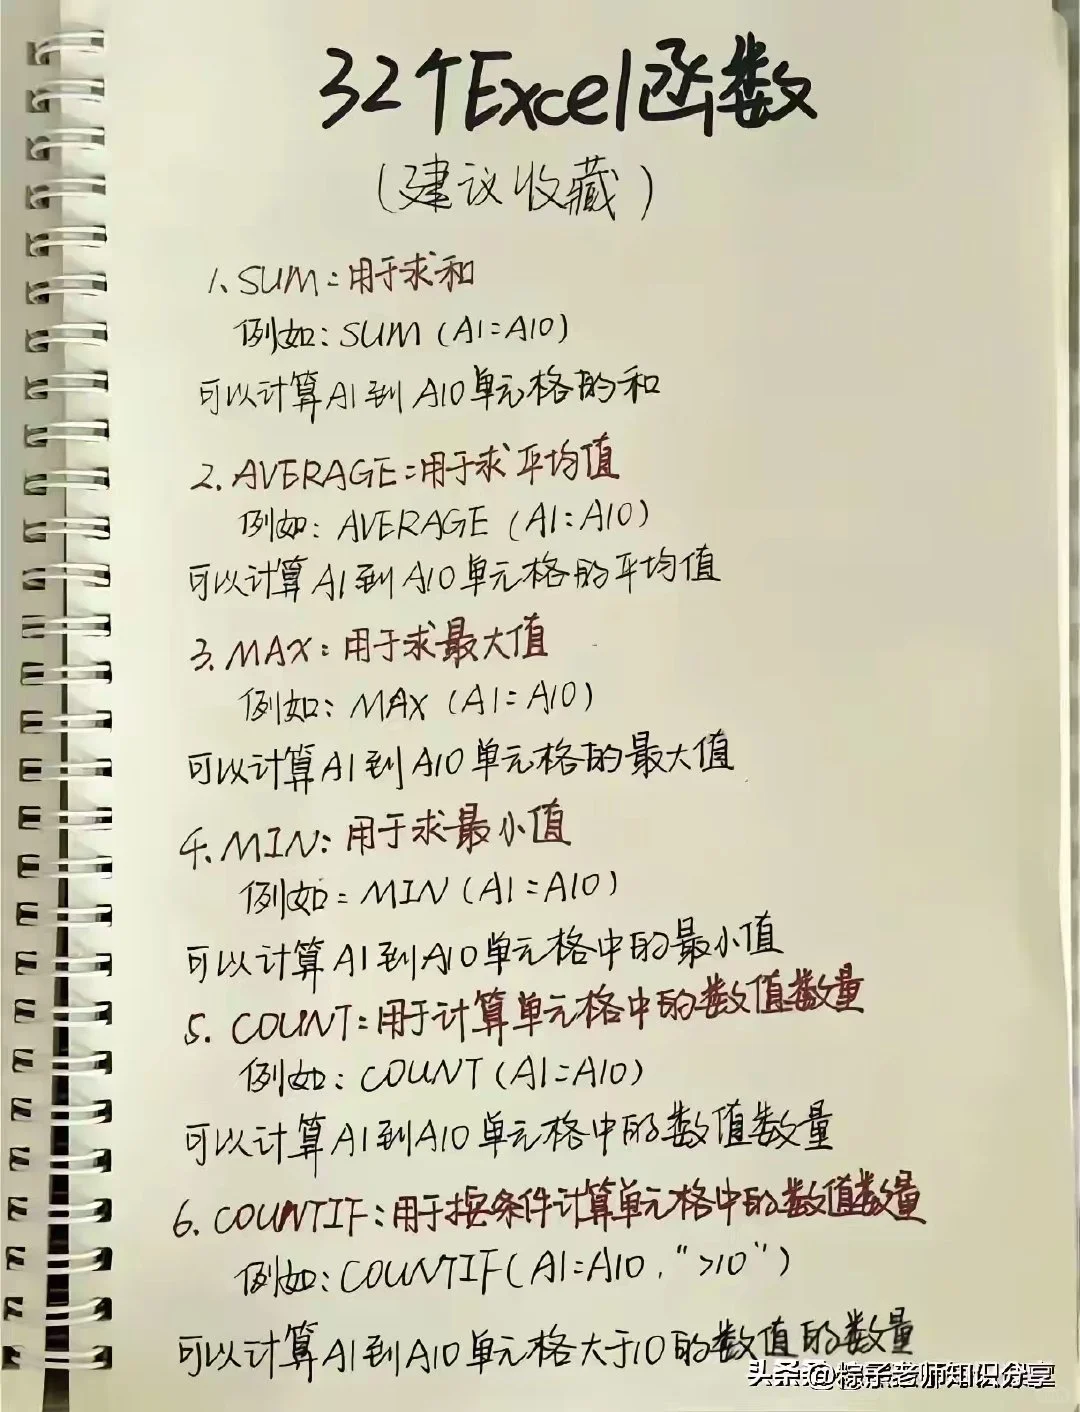 32个Excel函数
(建议收藏)
1、SUM:用于求和
例如:SUM(A1:A10)
可以计算A1到A10单元格的和
2、AVERAGE:用于求平均值
例如:AVERAGE(A1:A10)
可以计算A1到A10单元格的平均值
3、MAX:用于求最大值
例如:MAX(A1:A10)
可以计算A1到A10单元格的最大值
4、MIN:用于求最小值
例如:MIN(A1:A10)
可以计算A1到A10单元格中的最小值
5、COUNT:用于计算单元格中的数值数量
例如:COUNT(A1:A10)
可以计算A1到A10单元格中的数值数量
6、COUNTIF:用于按条件计算单元格中的数值数量
例如:COUNTIF(A1:A10,“>10”)
可以计算A1到A10单元格大于10的数值的数量
头条@粽子老师知识分享